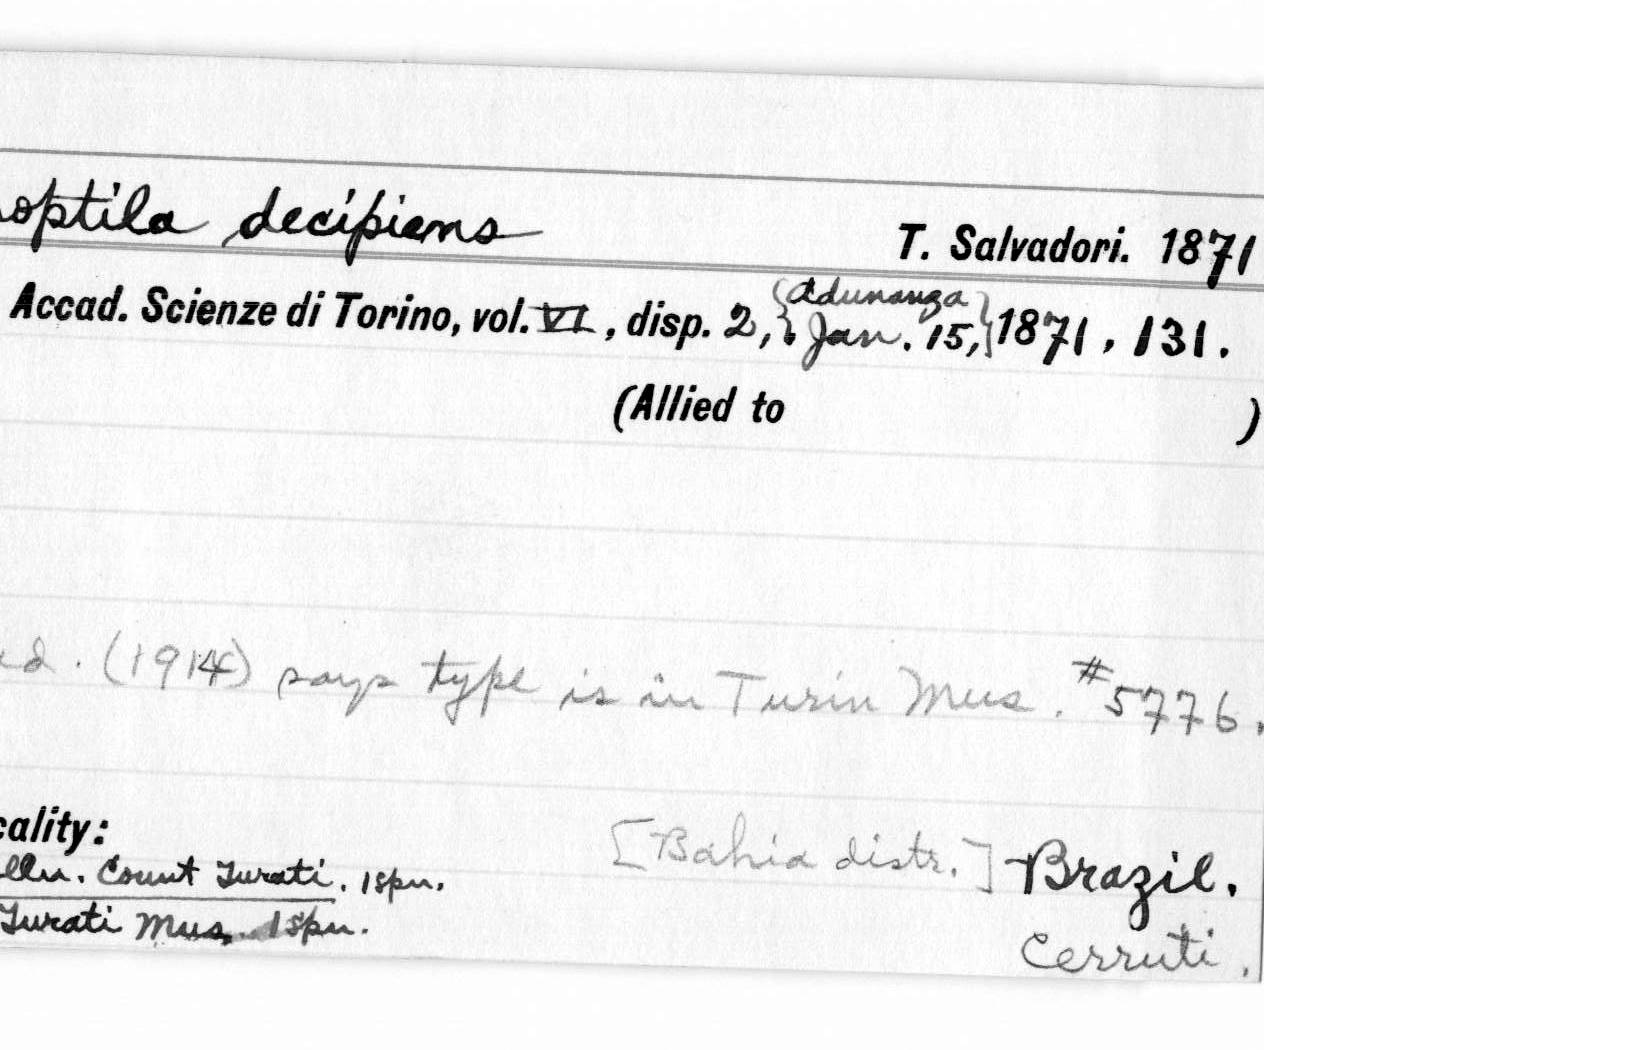 optila decipiens
T. Salvadori. 1871
Accad. Scienze di Torino, vol. VI, disp. 2, {Adunanza Jan. 15,} 1871, 131.
(Allied to )
ed. (1914) says type is in Turin Mus. #5776.
cality:
[Bahia distr.] Brazil.
lln. Count Turati. 1 spn.
Turati Mus. 1 spn.
Cerruti.